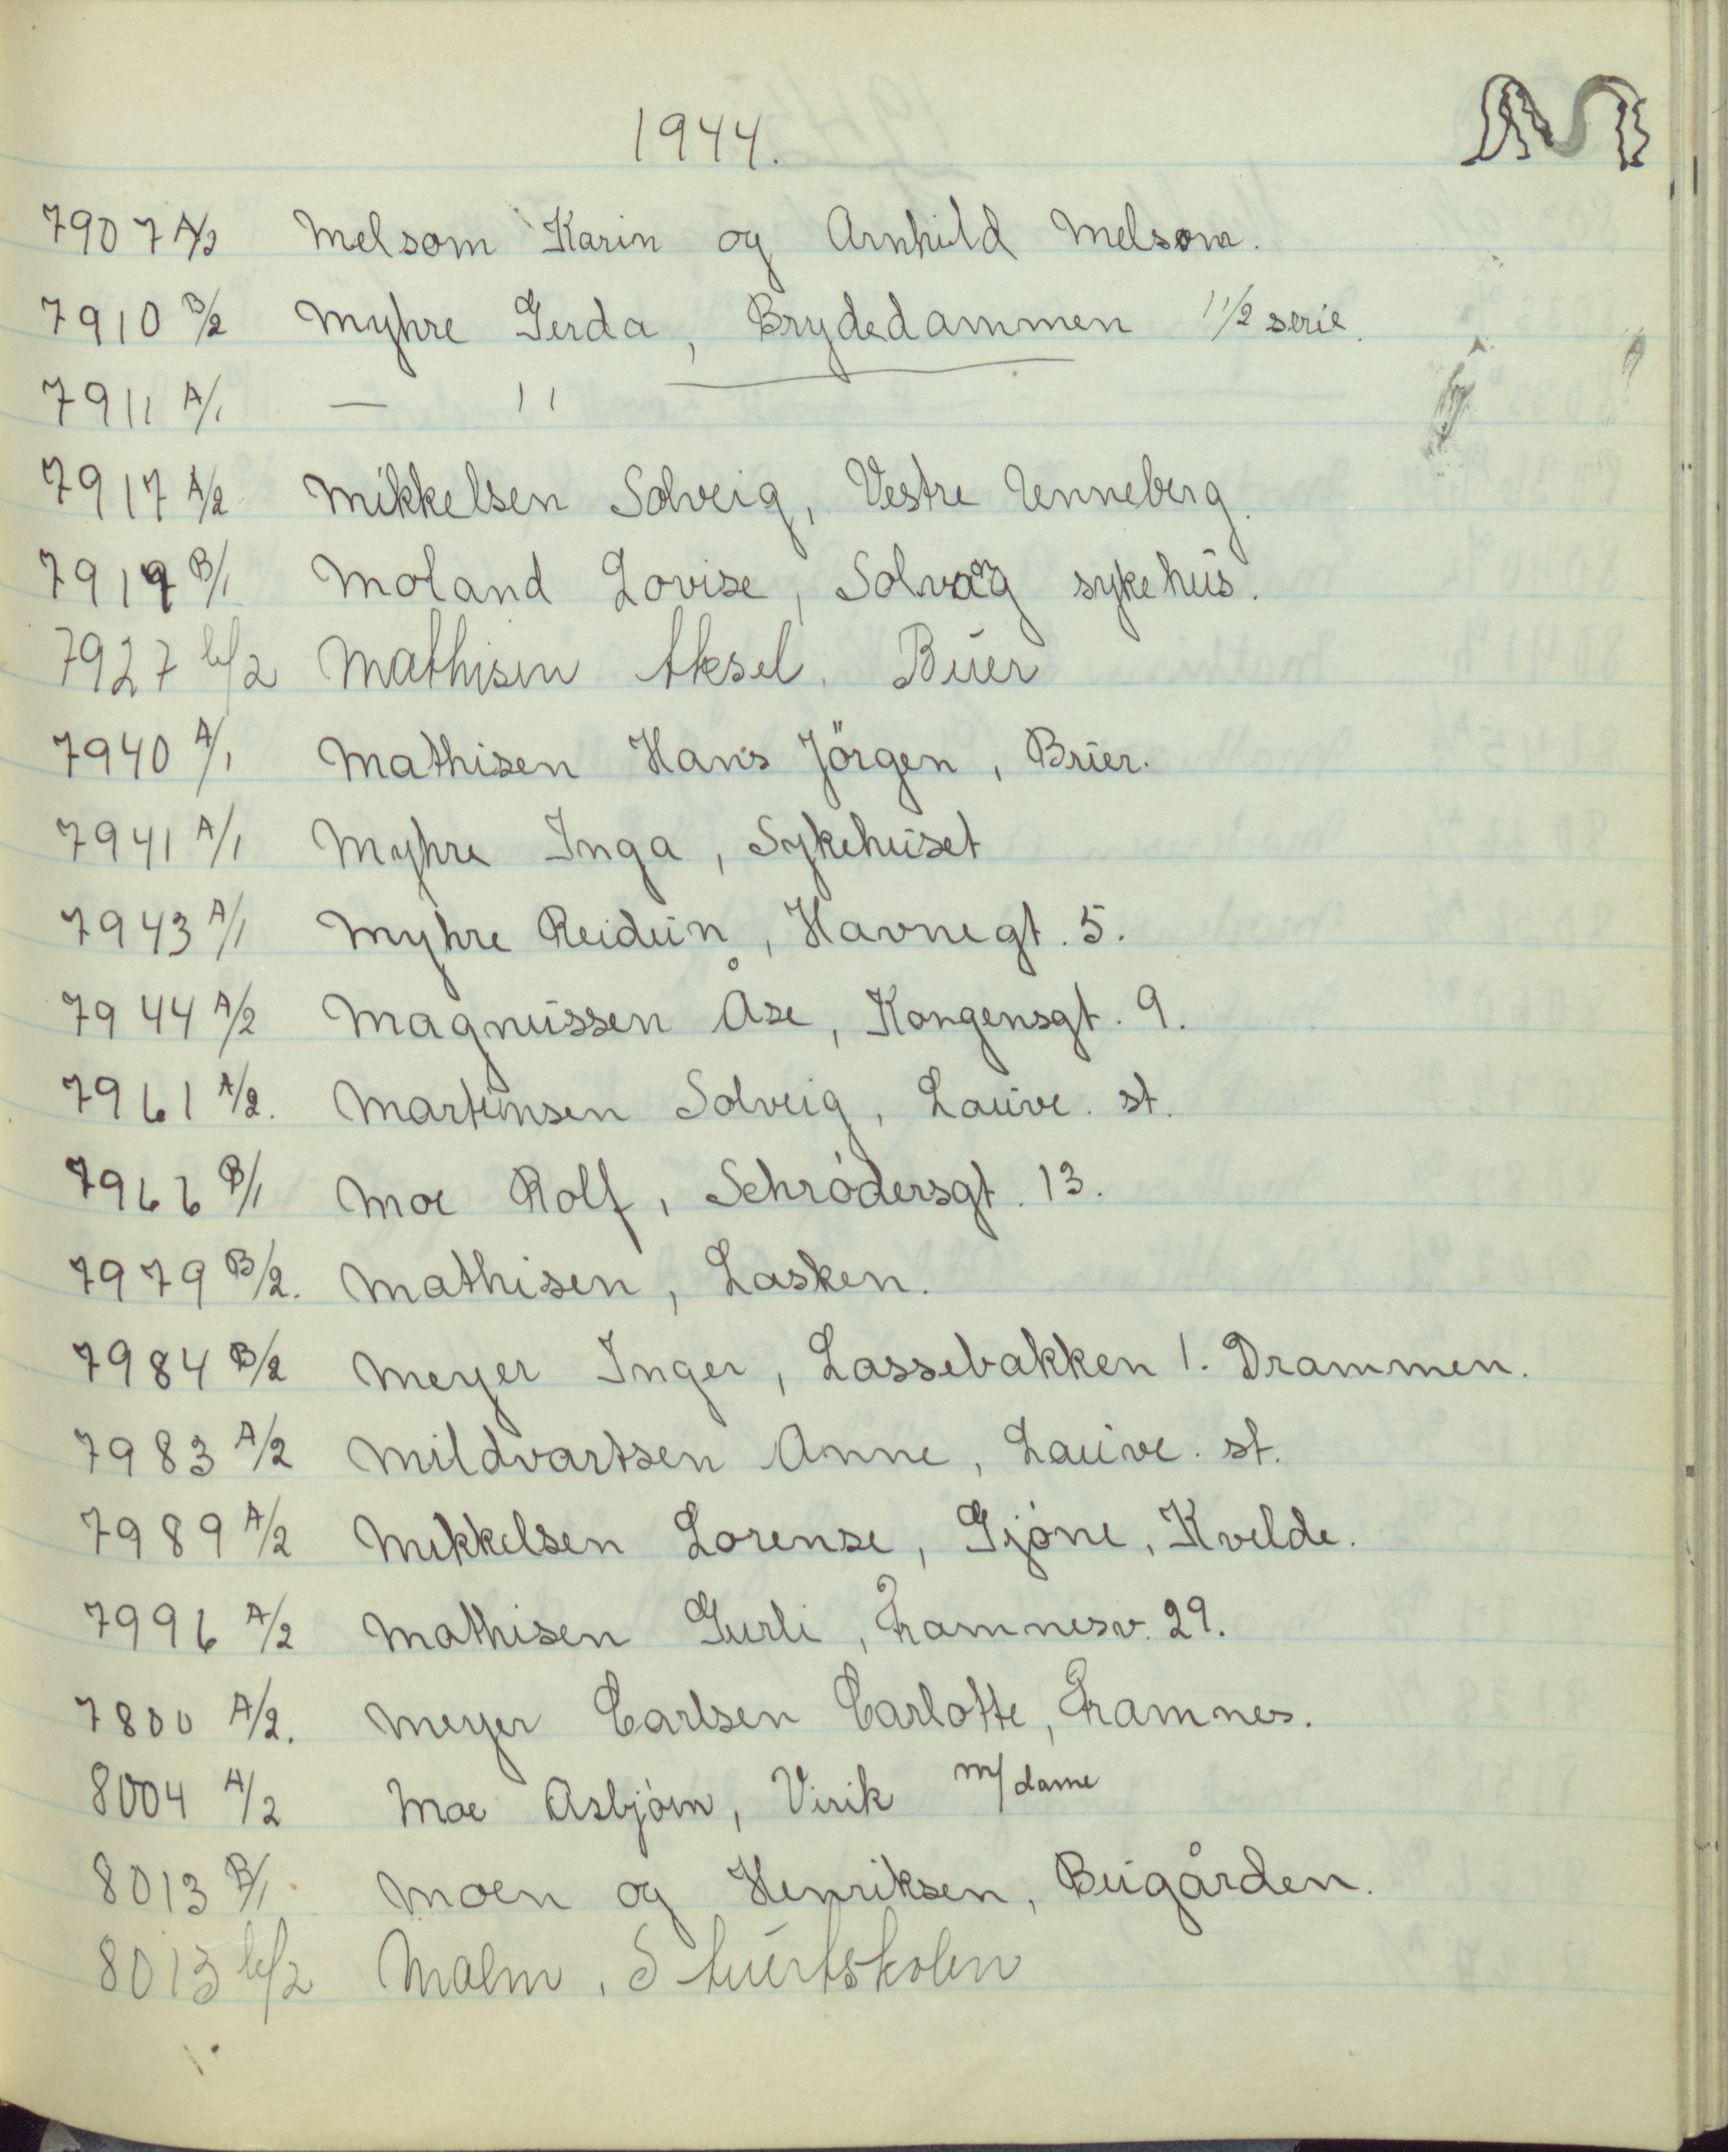 1944.
7907 A/2 Melsom Karin og Arnhild Melsom.
7910 B/2 Myhre Gerda, Brydedammen 1 1/2 serie.
7911 A/1 — 11
7917 A/2 Mikkelsen Solveig, Vestre Unneberg.
7919 B/1 Moland Lovise, Solvang sykehus.
7927 b/2 Mathisen Aksel. Buer
7940 A/1 Mathisen Hans Jörgen, Buer.
7941 A/1 Myhre Inga, Sykehuset
7943 A/1 Myhre Reidun, Havnegt. 5.
7944 A/2 Magnussen Åse, Kongensgt. 9.
7961 A/2. Martinsen Solveig, Lauve. st.
7966 B/1 Moe Rolf, Schródersgt. 13.
7979 B/2. Mathisen, Lasken.
7984 B/2 Meyer Inger, Lassebakken 1. Drammen.
7983 A/2 Mildvartsen Anne, Lauve. st.
7989 A/2 Mikkelsen Lorense, Gjóne, Kvelde.
7996 A/2 Mathisen Gurli, Framnesv. 29.
7800 A/2. Meyer Carlsen Carlotte, Framnes.
8004 A/2 Moe Asbjórn, Virik m/dame
8013 B/1. Moen og Henriksen, Bugården.
8013 b/2 Malm, Stuertskolen